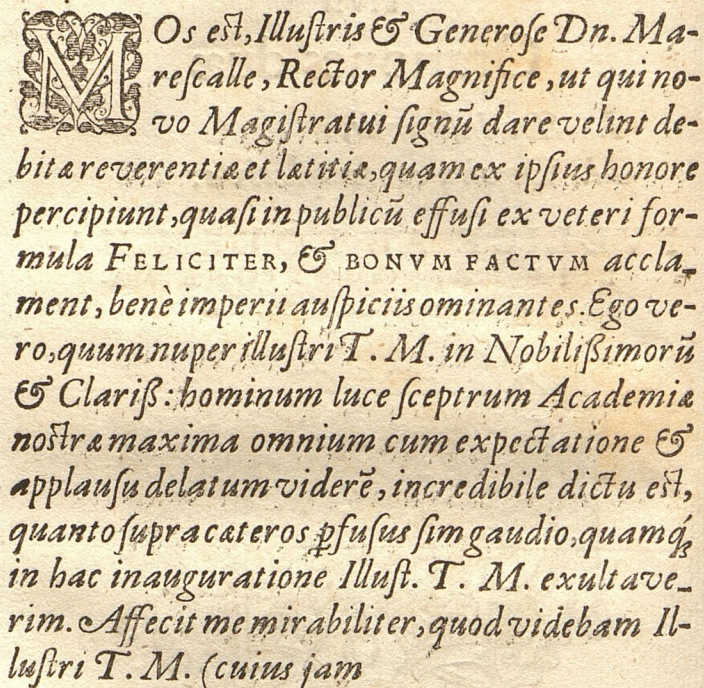 MOs eſt, Illuſtris & Generoſe Dn. Ma-
reſcalle, Rector Magnifice, ut qui no-
vo Magiſtratui ſignū dare velint de-
bitæ reverentiæ et lætitiæ, quam ex ipſius honore
percipiunt, quaſi in publicū effuſi ex veteri for-
mula FELICITER, & BONVM FACTVM accla-
ment, benè imperii auſpiciis ominantes. Ego ve-
ro, quum nuper illuſtri T. M. in Nobilißimorū
& Clariß: hominum luce ſceptrum Academiæ
noſtræ maxima omnium cum expectatione &
applauſu delatum viderē, incredibile dictu eſt,
quanto ſupra cæteros ꝑfuſus ſim gaudio, quamq́;
in hac inauguratione Illuſt. T. M. exultave-
rim. Affecit me mirabiliter, quod videbam Il-
luſtri T. M. (cuius jam